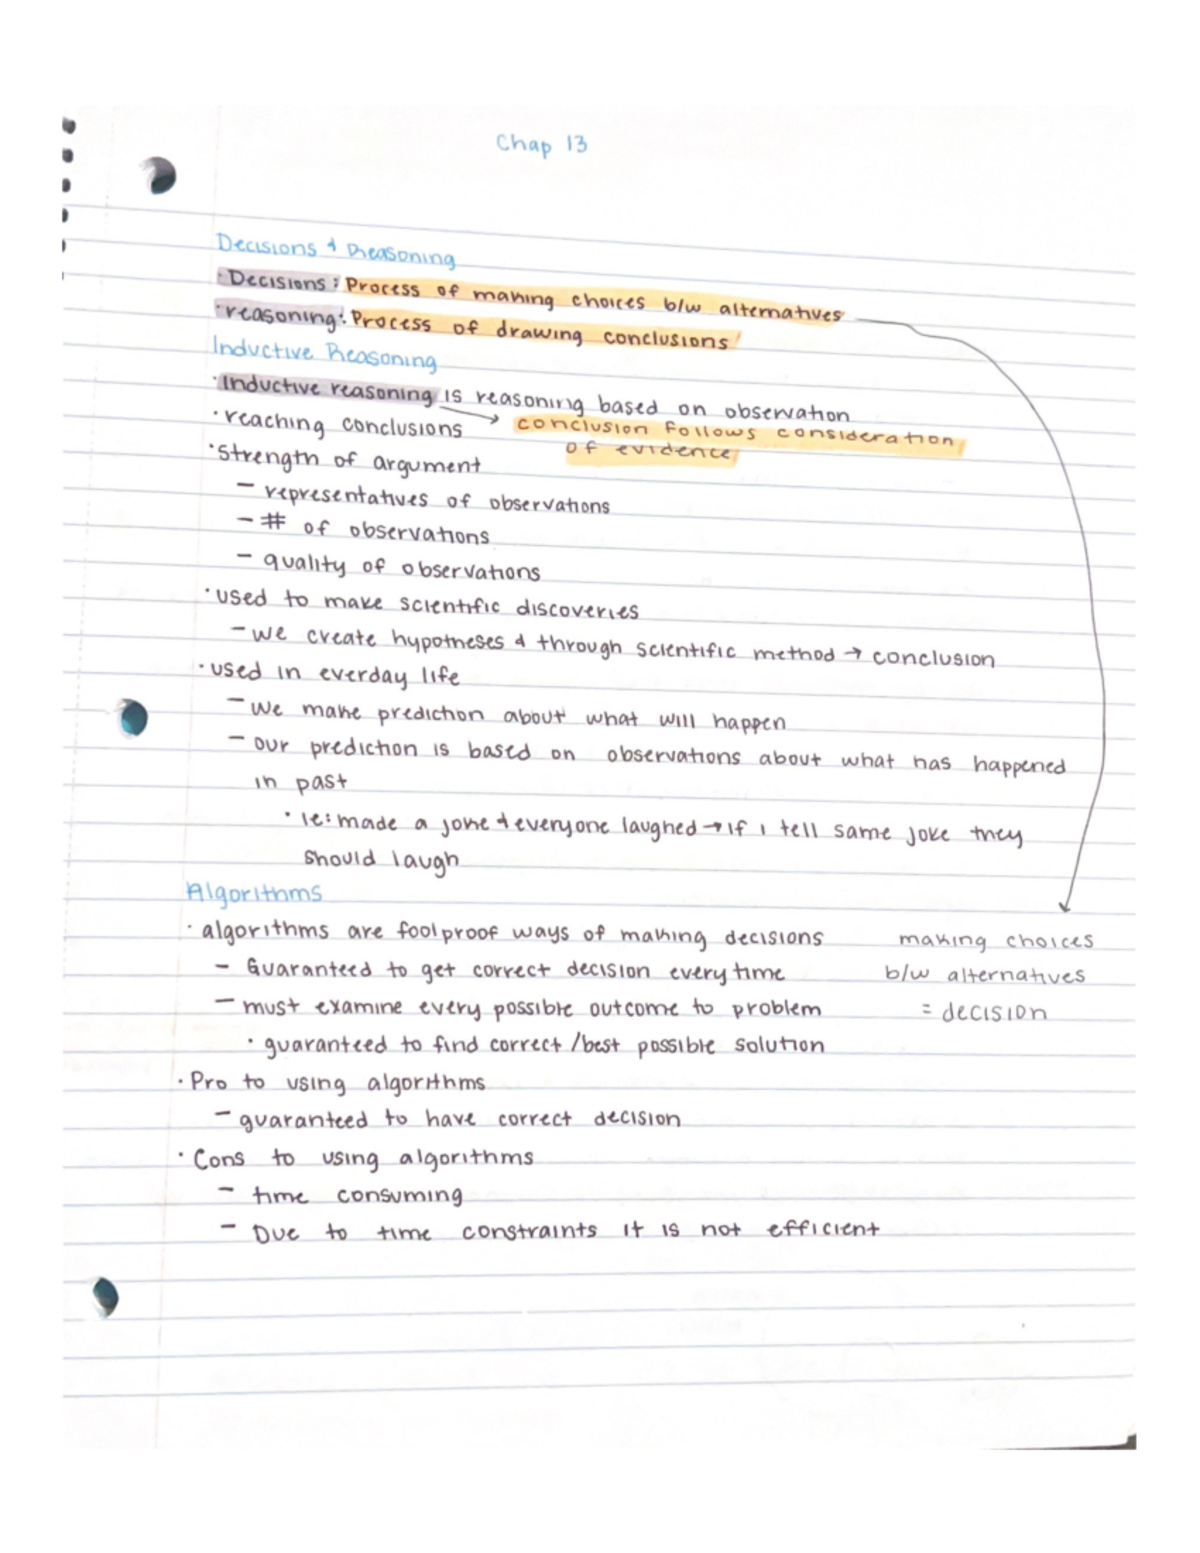 Chap 13
Decisions & Reasoning
· Decisions: Process of making choices b/w alternatives
· reasoning: Process of drawing conclusions
Inductive Reasoning
· Inductive reasoning is reasoning based on observation
· reaching conclusions → conclusion follows consideration
of evidence
· Strength of argument
- representatives of observations
- # of observations
- quality of observations
· used to make scientific discoveries
- we create hypotheses & through scientific method → conclusion
· used in everday life
- We make prediction about what will happen
- our prediction is based on observations about what has happened
in past
· ie: made a joke & everyone laughed → if i tell same joke they
should laugh
Algorithms
· algorithms are foolproof ways of making decisions
- Guaranteed to get correct decision every time
- must examine every possible outcome to problem
· guaranteed to find correct/best possible solution
· Pro to using algorithms
- guaranteed to have correct decision
· Cons to using algorithms
- time consuming
- Due to time constraints it is not efficient
making choices
b/w alternatives
= decision